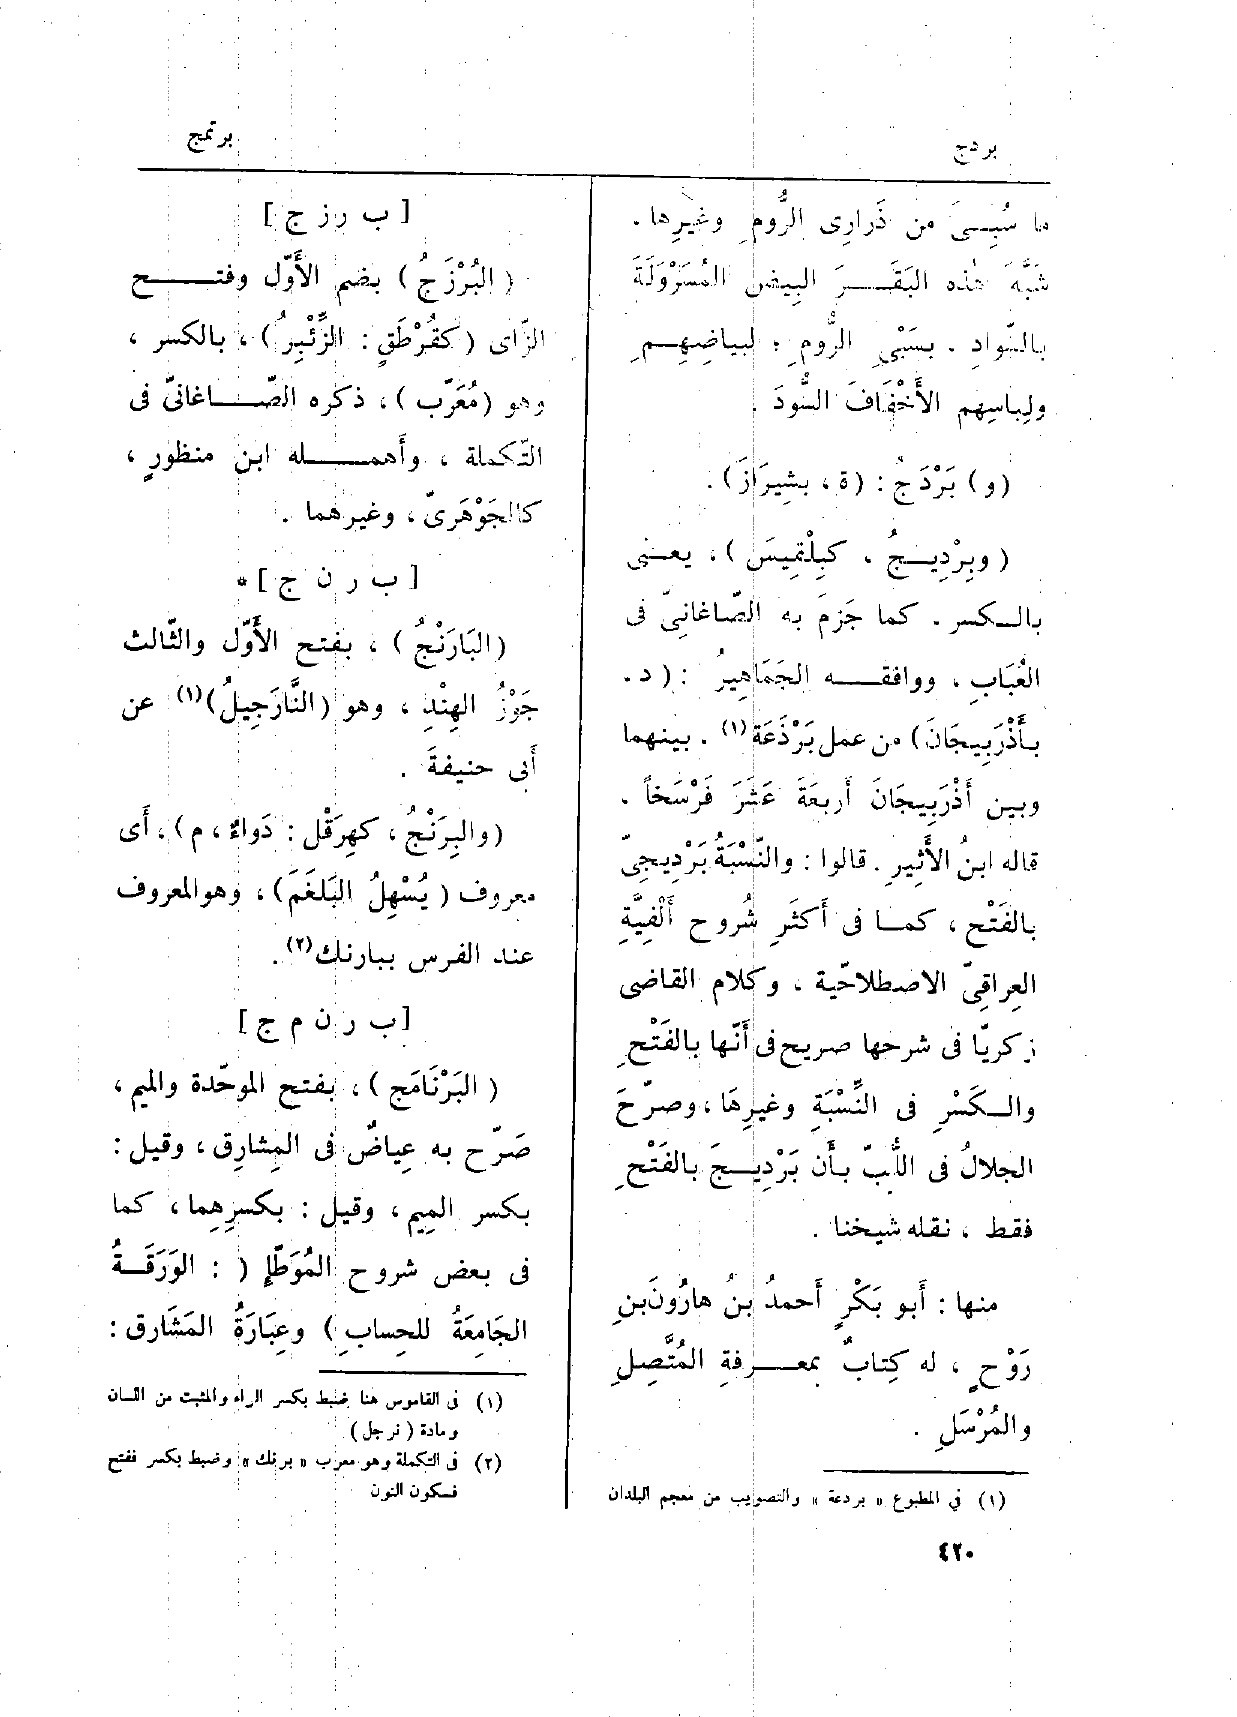 بردج
برنمج
ما سُبِىَ من ذَرارِى الرُّومِ وغيرِها .
شَبَّهَ هٰذه البَقَرَ البِيضَ المُسَرْوَلَةَ
بالسَّوادِ . بسَبْىِ الرُّومِ ، لبياضِهِمِ
ولِباسِهِم الأَخْفَافَ السُّودَ .
(و) بَرْدَجُ : (ة ، بشِيرَازَ) .
(وبِرْدِيجُ ، كبِلْقِيسَ) ، يعنى
بالكسر . كما جَزمَ به الصّاغانِىّ فى
العُبَابِ ، ووافقه الجَمَاهِيرُ : (د .
بأَذْرَبِيجَانَ) من عمل بَرْذَعَة(١) . بينهما
وبين أَذْرَبِيجَانَ أَربعَةَ عَشَرَ فَرْسَخاً .
قاله ابنُ الأَثِيرِ . قالوا : والنّسْبَةُ بَرْدِيجِىّ
بالفَتْح ، كما فى أَكثَرِ شُروح أَلْفِيَّةِ
العِراقِىّ الاصطلاحّية ، وكلام القاضى
زكريّا فى شرحها صريح فى أَنّها بالفَتْحِ
والكَسْرِ فى النِّسْبَةِ وغيرِهَا ، وصرّحَ
الجلالُ فى اللُّبّ بأَن بَرْدِيجَ بالفَتْحِ
فقط ، نقله شيخنا .
منها : أَبو بَكْرٍ أَحمدُ بنُ هارُونَ بنِ
رَوْحٍ ، له كِتابٌ بمعرفةِ المُتَّصِلِ
والمُرْسَلِ .
(١) في المطبوع « بردعة » والتصويب من معجم البلدان
[ ب ر ز ج ]
( البُرْزَجُ ) بضم الأَوّل وفتح
الزّاى ( كقُرْطَقٍ : الزِّئْبِرُ ) ، بالكسر ،
وهو (مُعَرّب) ، ذكره الصّاغانىّ فى
التّكملة ، وأَهمله ابن منظورٍ ،
كالجَوْهَرىّ ، وغيرهما .
[ ب ر ن ج ] *
(البَارَنْجُ) ، بفتح الأَوّل والثّالث
جَوْزُ الهِنْدِ ، وهو (النَّارَجِيلُ)(١) عن
أَبى حنيفةَ .
(والبِرَنْجُ ، كهِرَقْل : دَواءٌ ، م) ، أَى
معروف ( يُسْهِلُ البَلْغَمَ) ، وهو المعروف
عند الفرس ببارنك(٢) .
[ب ر ن م ج ]
( البَرْنَامَج ) ، بفتح الموحّدة والميم ،
صَرّح به عِياضٌ فى المشارِق ، وقيل :
بكسر المِيم ، وقيل : بكسرِهِما ، كما
فى بعض شروح المُوَطَّإِ ( : الوَرَقَةُ
الجَامِعَةُ للحِسابِ ) وعِبَارَةُ المَشَارق :
(١) فى القاموس هنا ضبط بكسر الراء والمثبت من اللسان
ومادة ( نرجل )
(٢) فى التكملة وهو معرب « برنك » وضبط بكسر ففتح
فسكون النون
٤٢٠